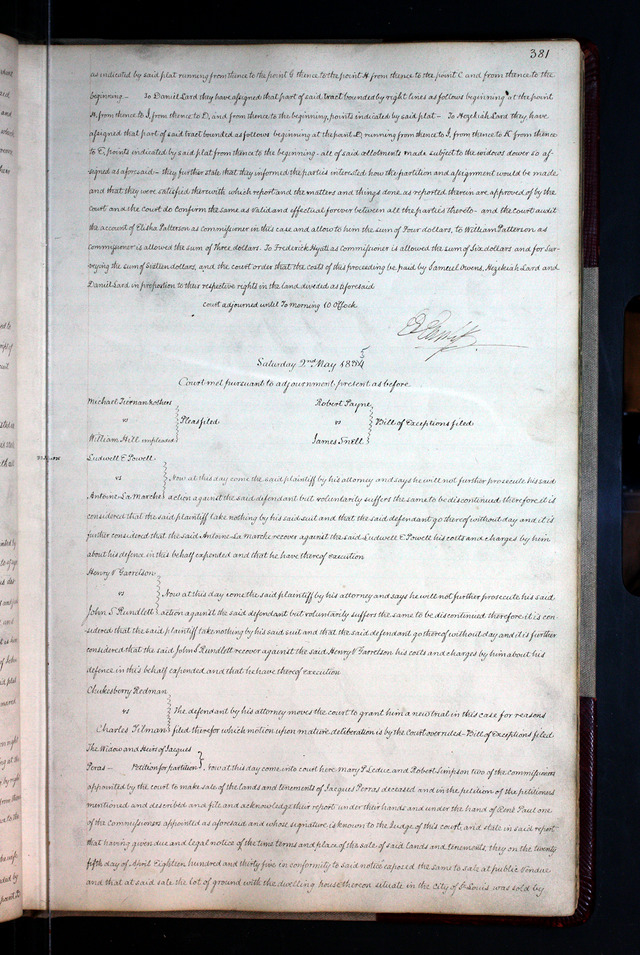 381
as indicated by said plat running from thence to the point G thence to the point H from thence to the point C and from thence to the
beginning — To Daniel Lard they have assigned that part of said tract bounded by right lines as follows beginning at the point
H, from thence to I, from thence to D, and from thence to the beginning, points indicated by said plat — To Hezekiah Lard they have
assigned that part of said tract bounded as follows beginning at the point D, running from thence to I, from thence to K from thence
to E, points indicated by said plat from thence to the beginning. all of said allotments made subject to the widows dower so as-
signed as aforesaid — they further state that they informed the parties interested how the partition and assignment would be made
and that they were satisfied therewith which report and the matters and things done as reported therein are approved of by the
court and the court do confirm the same as valid and effectual forever between all the parties thereto — and the court audit
the account of Elisha Patterson as commissioner in this case and allow to him the sum of Four dollars, to William Patterson as
commissioner is allowed the sum of Three dollars. To Frederick Hyatt as commissioner is allowed the sum of Six dollars and for Sur-
veying the sum of Sixteen dollars, and the court order that the costs of this proceeding be paid by Samuel Owens, Hezekiah Lard and
Daniel Lard in proportion to their respective rights in the land divided as aforesaid
court adjourned until To morning 10 O'Clock
Saturday 2nd May 1835
Court met pursuant to adjournment present as before
Michael Tiernan & others
vs Pleas filed
William Hill impleaded
Robert Payne
vs Bill of Exceptions filed
James Snell
Ludwell E Powell
vs Now at this day come the said plaintiff by his attorney and says he will not further prosecute his said
Antoine La Marche action against the said defendant but voluntarily suffers the same to be discontinued therefore it is
considered that the said plaintiff take nothing by his said suit and that the said defendant go thereof without day and it is
further considered that the said Antoine La Marche recover against the said Ludwell E Powell his costs and charges by him
about his defence in this behalf expended and that he have thereof execution
Henry V Garretson
vs Now at this day come the said plaintiff by his attorney and says he will not further prosecute his said
John S Rundlett action against the said defendant but voluntarily suffers the same to be discontinued therefore it is con-
sidered that the said plaintiff take nothing by his said suit and that the said defendant go thereof without day and it is further
considered that the said John S Rundlett recover against the said Henry V Garretson his costs and charges by him about his
defence in this behalf expended and that he have thereof execution
Chukesberry Redman
vs The defendant by his attorney moves the court to grant him a new trial in this case for reasons
Charles Tilman filed therefor which motion upon mature deliberation is by the Court overruled — Bill of Exceptions filed
The Widow and Heirs of Jacques
Peras — Petition for partition Now at this day come into court here Mary P Leduc and Robert Simpson two of the commissioners
appointed by the court to make sale of the lands and tenements of Jacques Perras deceased and in the petition of the petitioners
mentioned and described and file and acknowledge their report under their hands and under the hand of René Paul one
of the Commissioners appointed as aforesaid and whose signature is known to the Judge of this court, and state in said report
that having given due and legal notice of the time terms and place of the sale of said lands and tenements, they on the twenty
fifth day of April Eighteen hundred and thirty five in conformity to said notice exposed the same to sale at public Vendue
and that at said sale the lot of ground with the dwelling house thereon situate in the City of St Louis was sold by